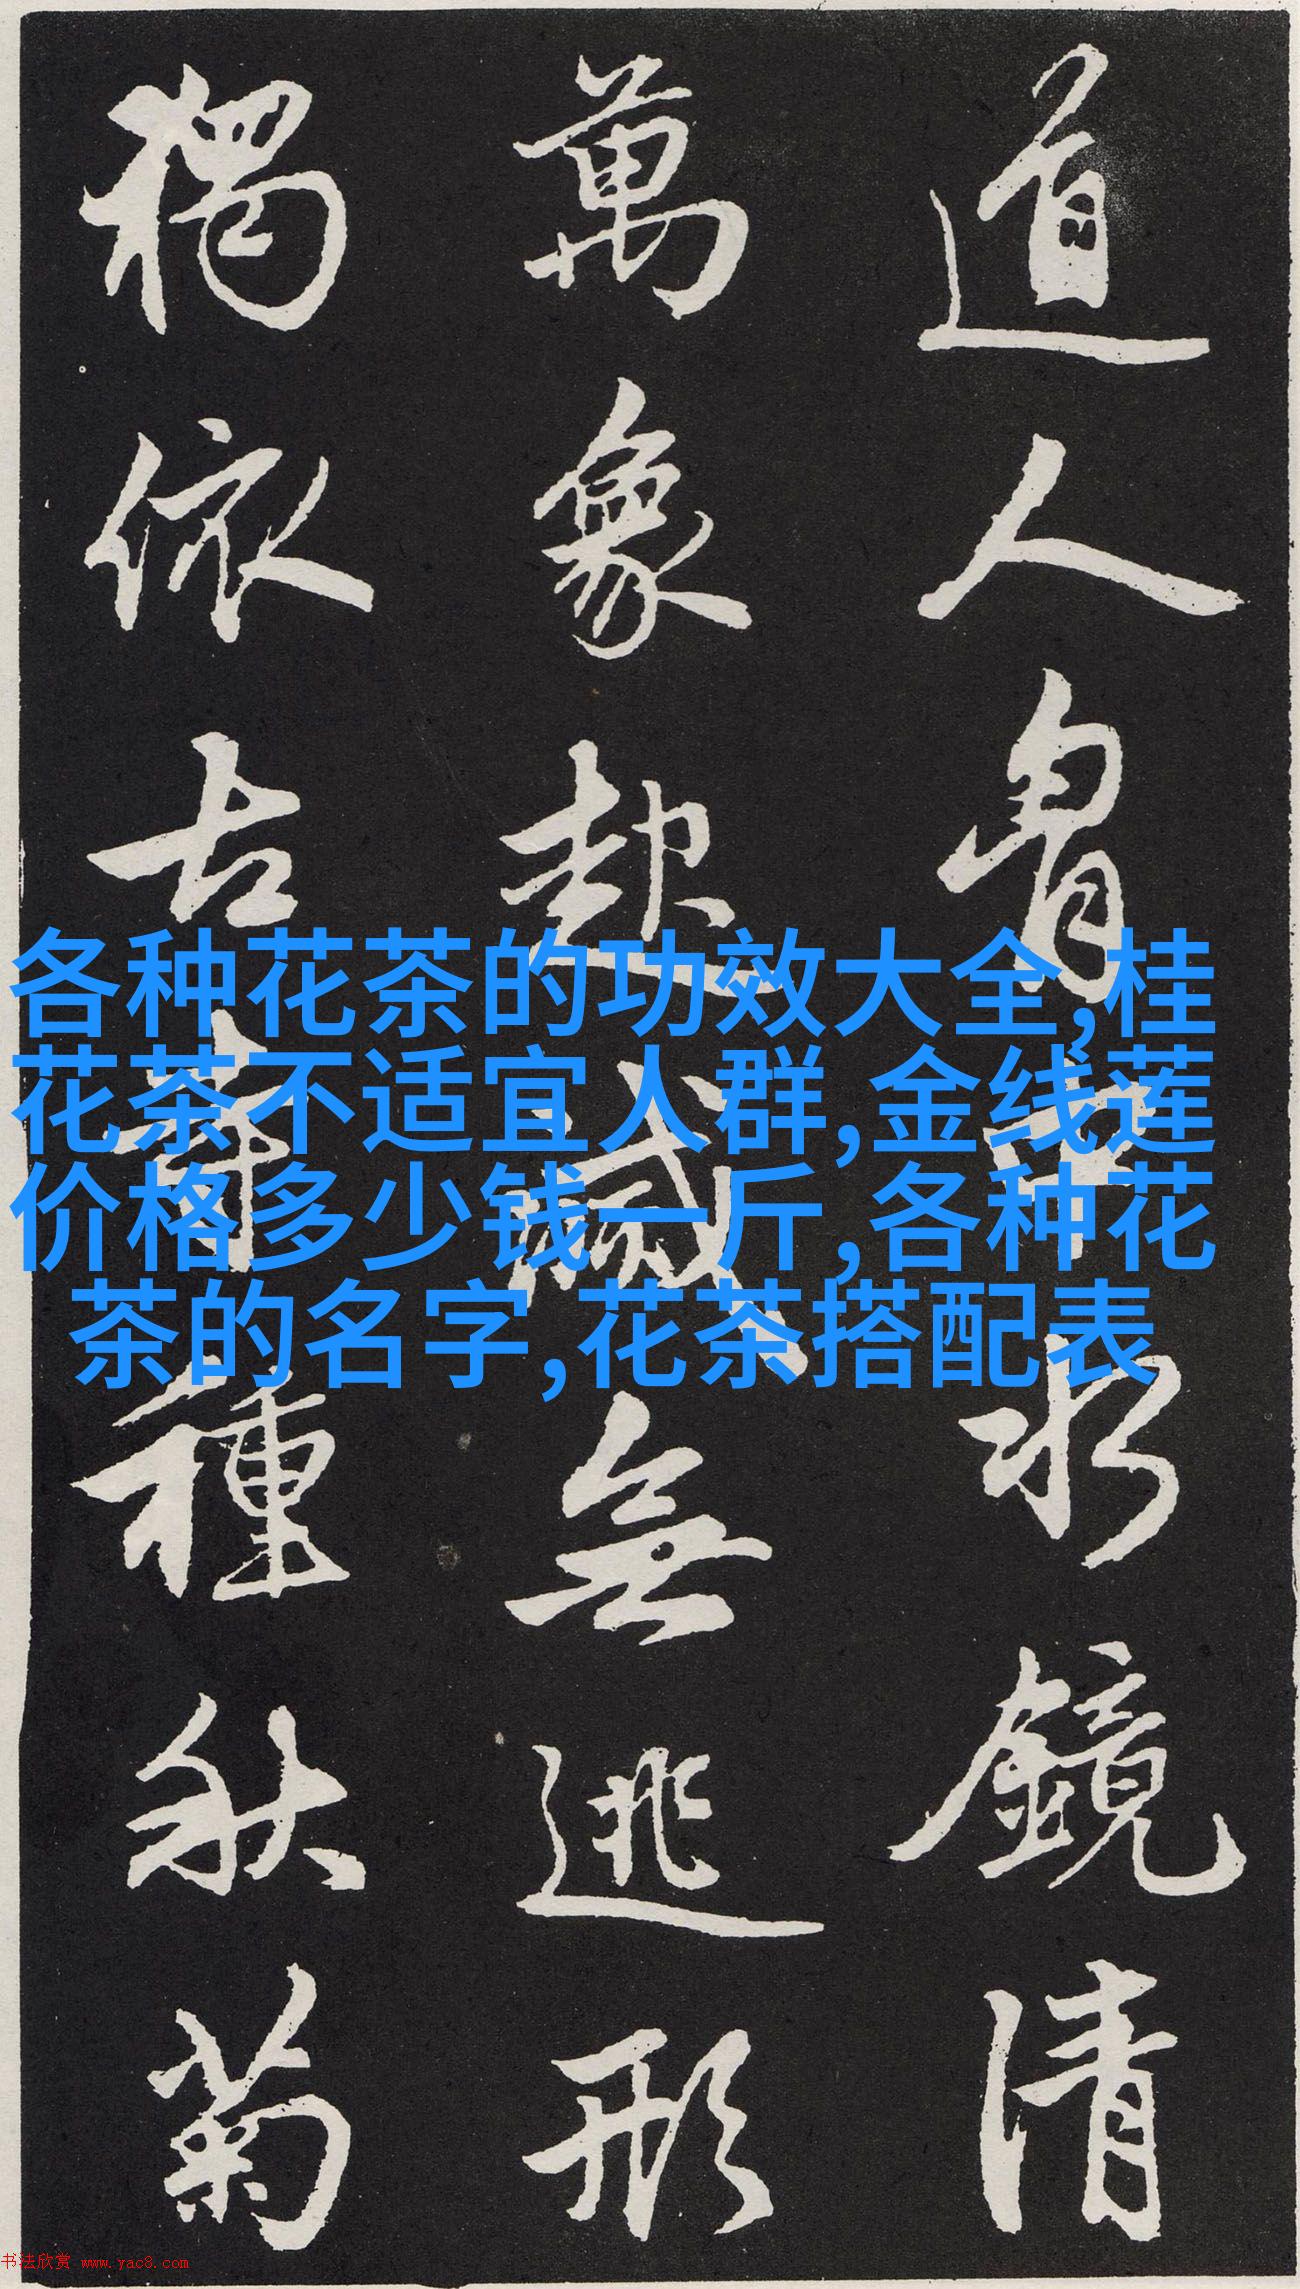 道人胷中水鏡清
萬象起滅無逃形
獨依古寺種秋菊
各种花茶的功效大全,桂
花茶不适宜人群,金线莲
价格多少钱一斤,各种花
茶的名字,花茶搭配表
书法欣赏 www.yac8.com